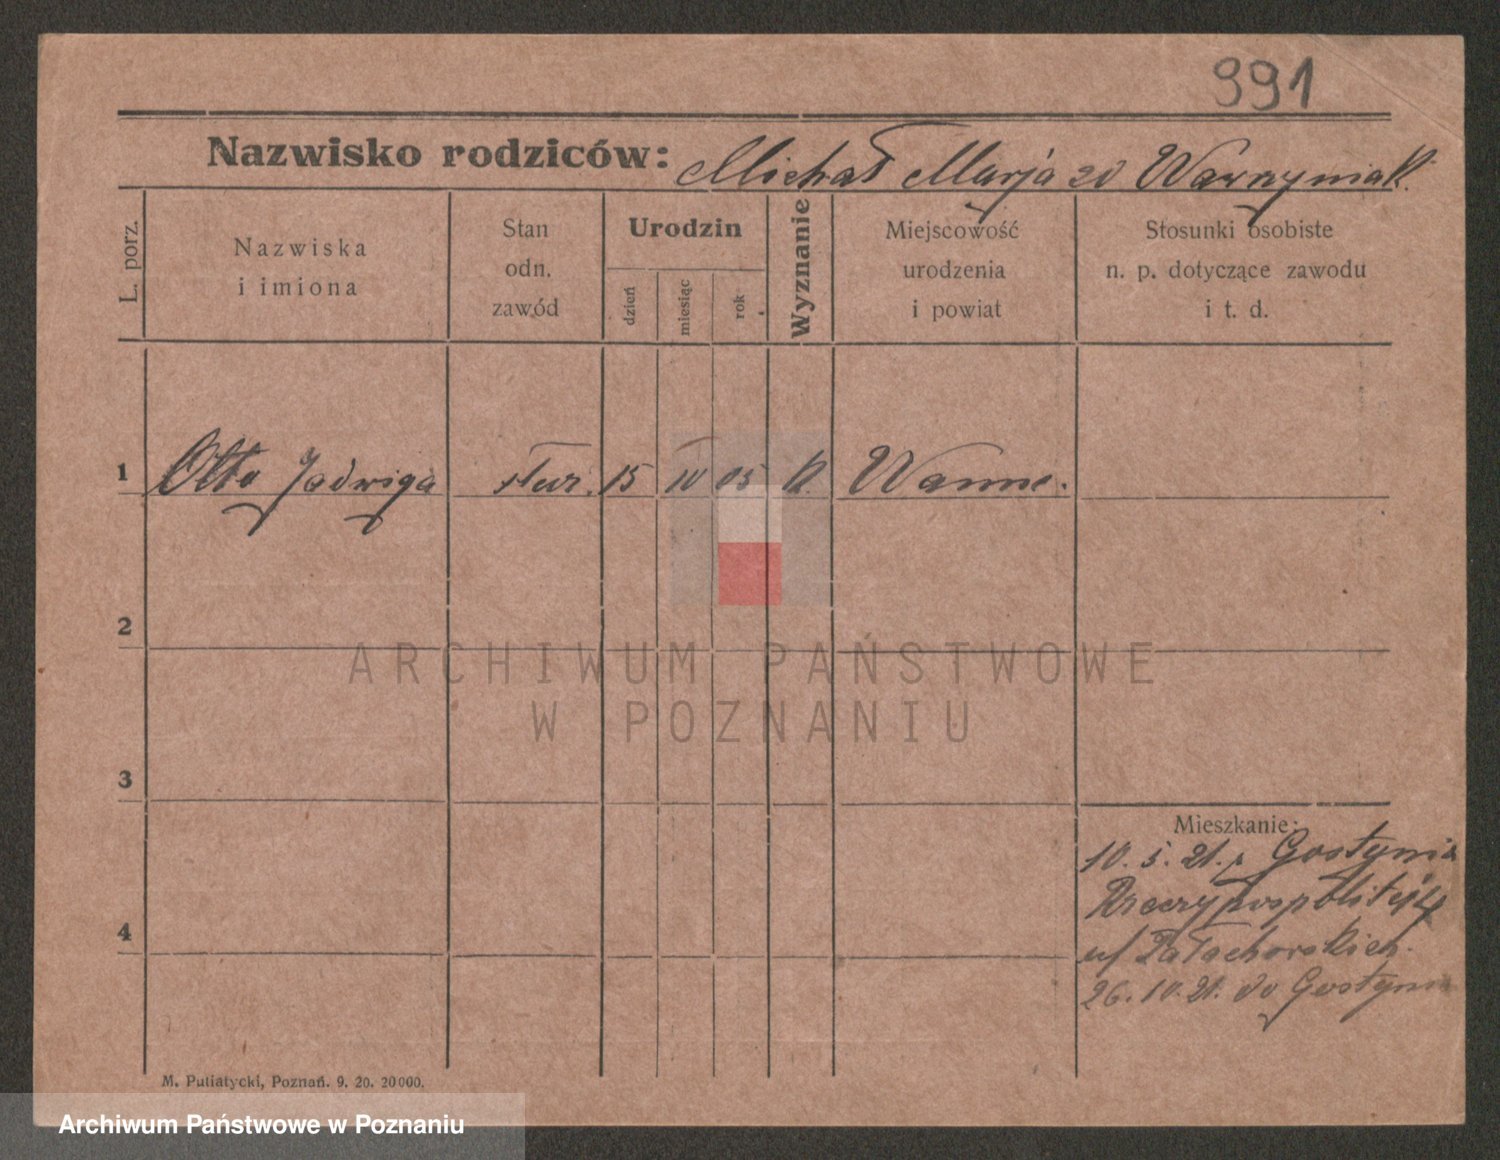 991
Nazwisko rodziców: Michał Marja zd Wawrzyniak.
L. porz.
Nazwiska
i imiona
Stan
odn.
zawód
Urodzin
dzień
miesiąc
rok
Wyznanie
Miejscowość
urodzenia
i powiat
Stosunki osobiste
n. p. dotyczące zawodu
i t. d.
1 Otto Jadwiga służ. 15 10 05 k. Wanne.
2
3
4
Mieszkanie:
10. 5. 21. z Gostynia
Rzeczypospolitej 4
u/
26. 10. 21. do Gostynia
M. Putiatycki, Poznań. 9. 20. 20000.
ARCHIWUM PAŃSTWOWE
W POZNANIU
Archiwum Państwowe w Poznaniu